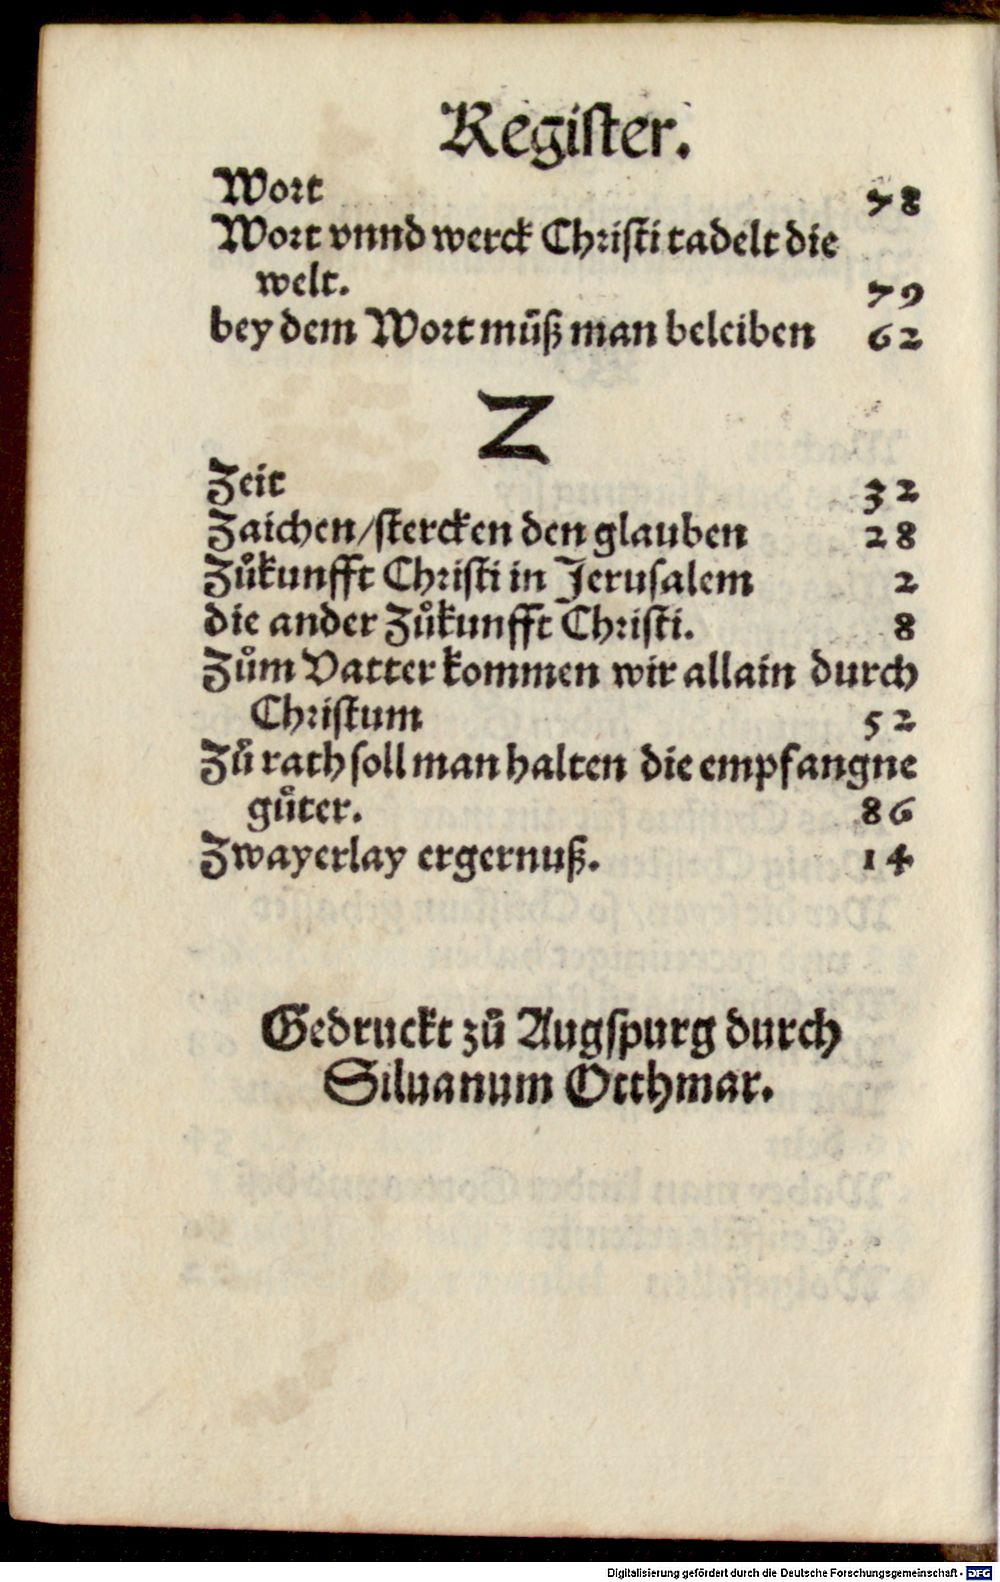 Regiſter.
Wort 78
Wort vnnd werck Chriſti tadelt die
welt. 79
bey dem Wort můß man beleiben 62
Z
Zeit 32
Zaichen/ſtercken den glauben 28
Zůkunfft Chriſti in Jeruſalem 2
die ander Zůkunfft Chriſti. 8
Zům Vatter kommen wir allain durch
Chriſtum 52
Zů rath ſoll man halten die empfangne
gůter. 86
Zwayerlay ergernuß. 14
Gedruckt zů Augſpurg durch
Siluanum Otthmar.
Digitalisierung gefördert durch die Deutsche Forschungsgemeinschaft - DFG